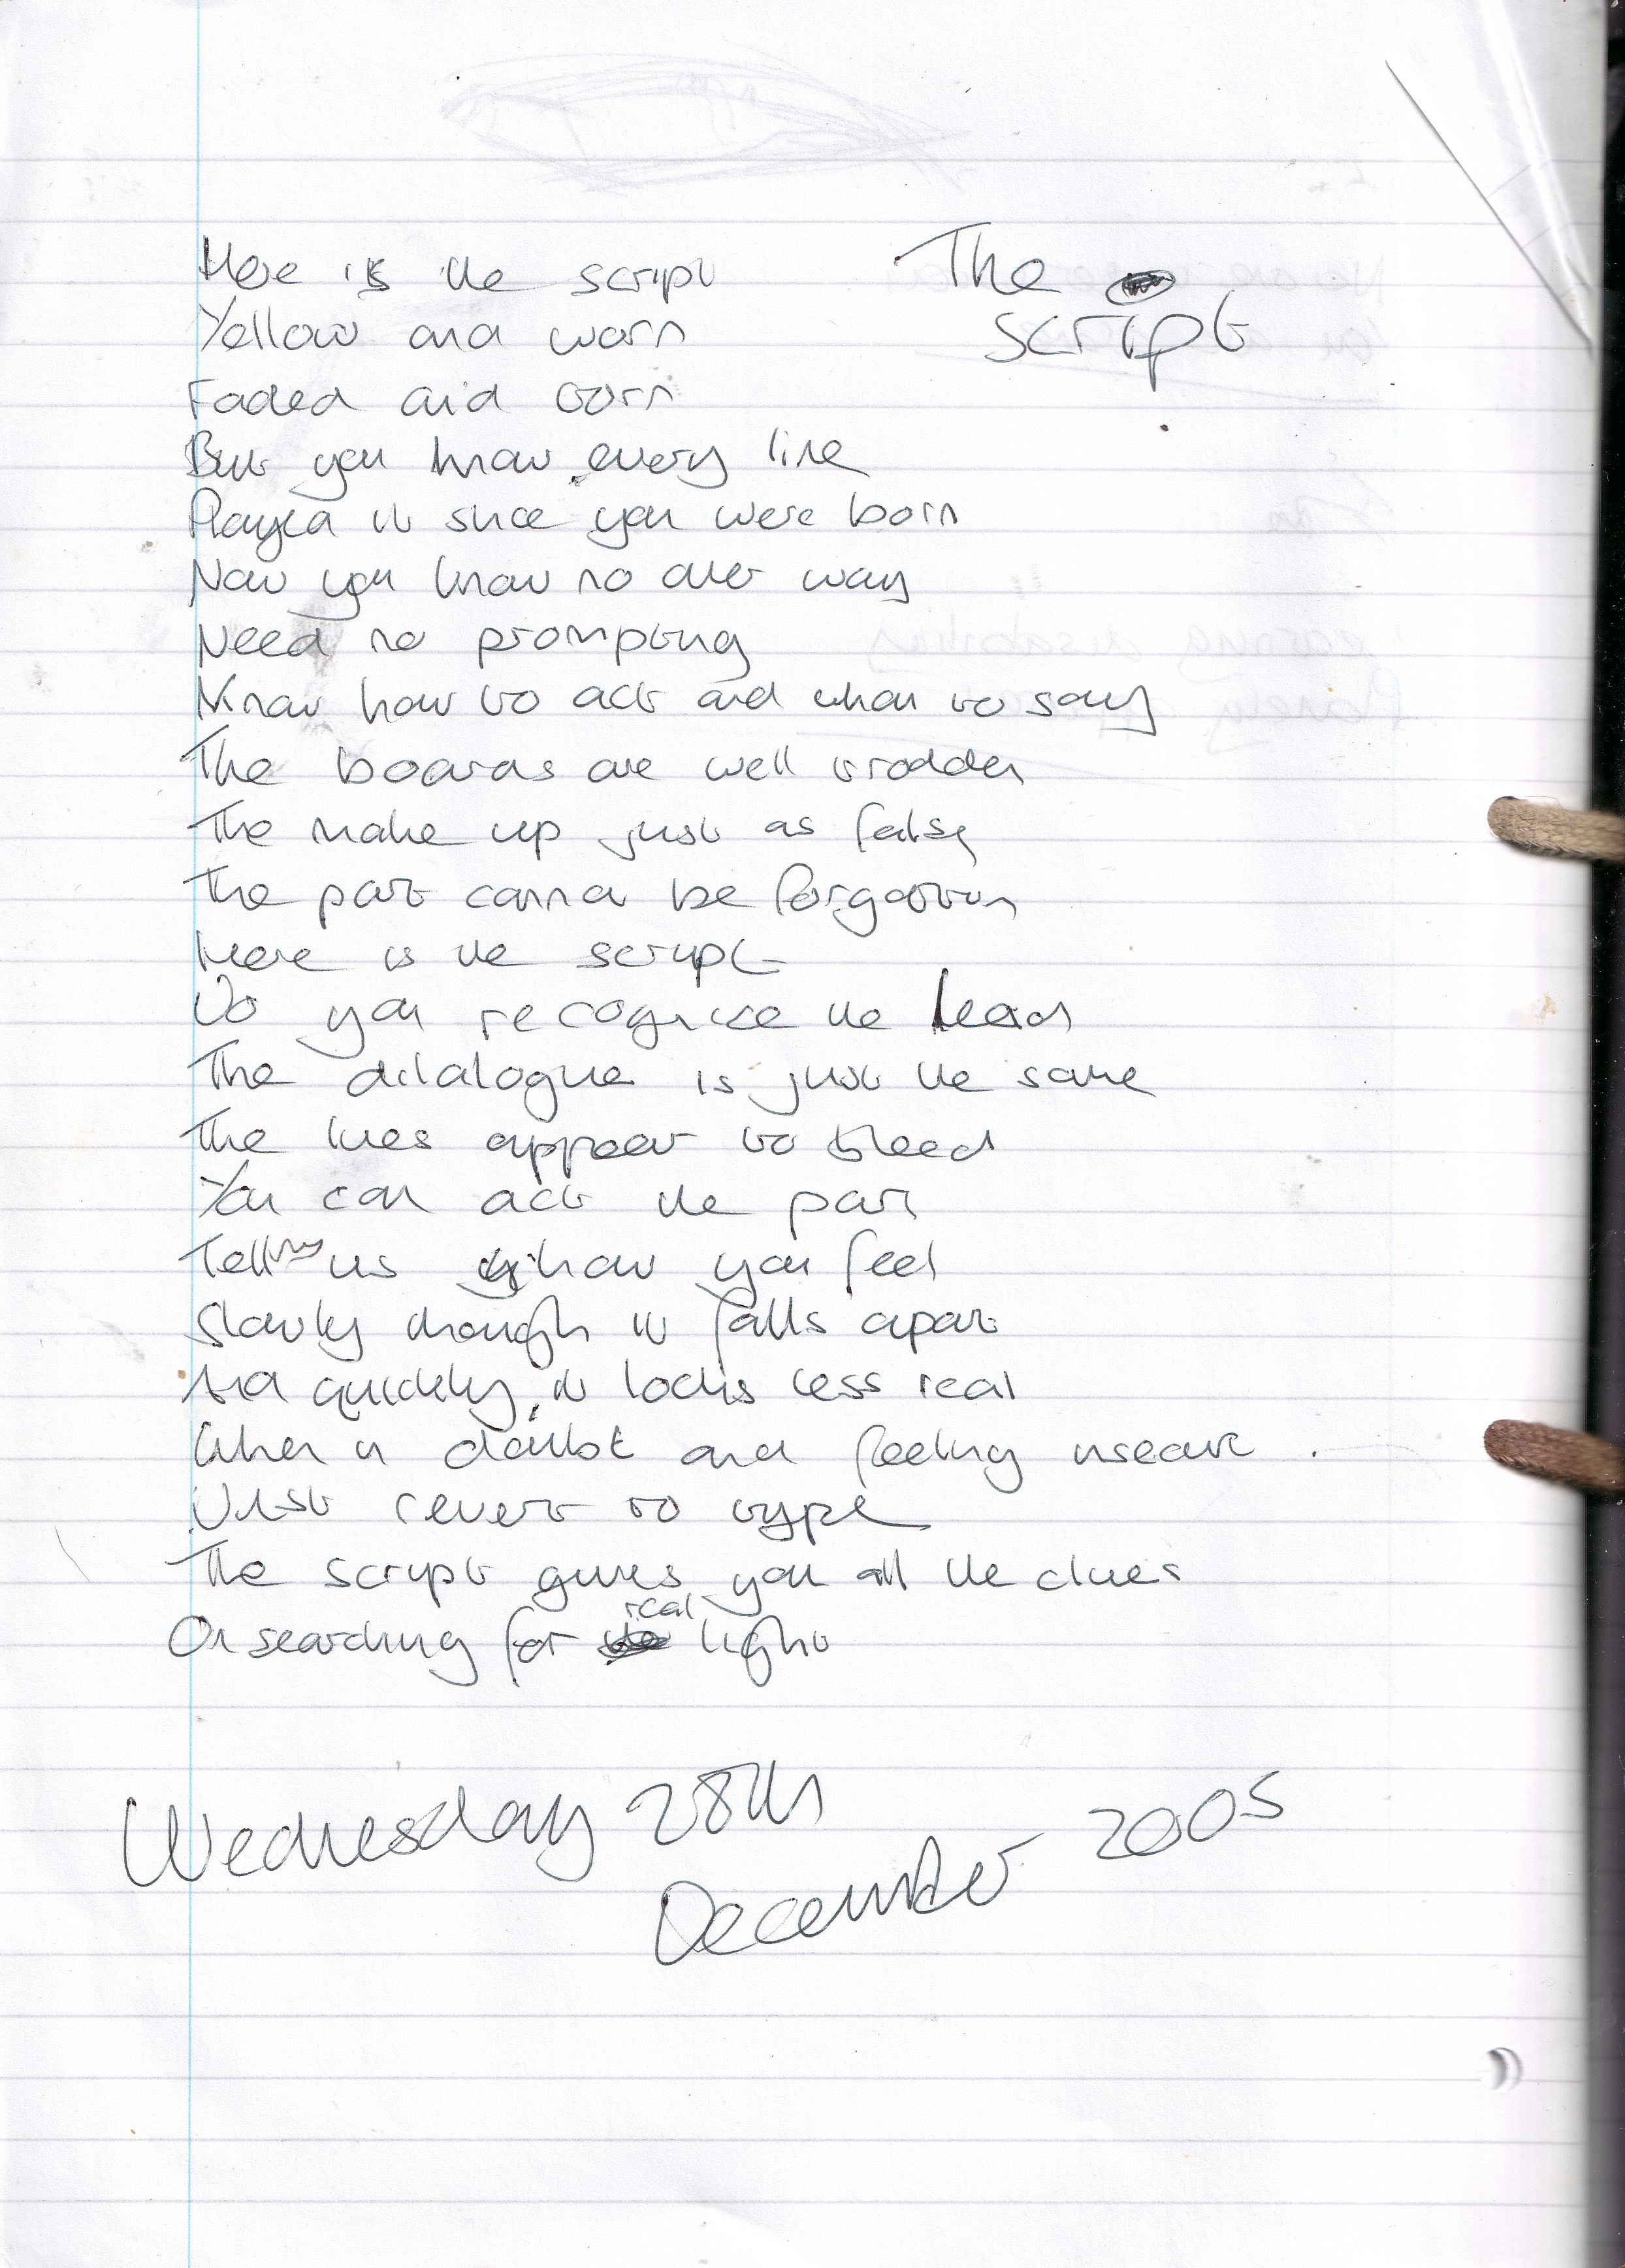 The
script
Here is the script
Yellow and worn
Faded and torn
But you know every line
Played it since you were born
Now you know no other way
Need no prompting
Know how to act and what to say
The boards are well trodden
The make up just as false
The part cannot be forgotten
Here is the script
Do you recognise the lead
The dilalogue is just the same
The lines appear to bleed
You can act the part
Tell us how you feel
Slowly though it falls apart
And quickly it looks less real
When in doubt and feeling insecure
Just revert to type
The script gives you all the clues
On searching for real light
Wednesday 28th
December 2005